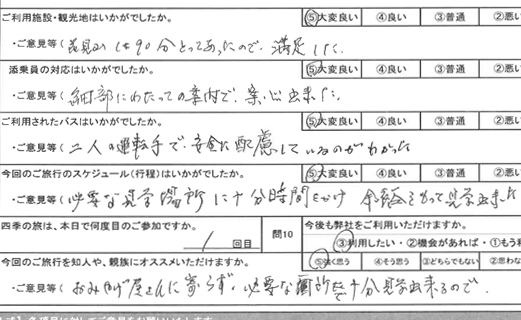 ご利用施設・観光地はいかがでしたか。 ⑤大変良い ④良い ③普通 ②悪い
・ご意見等( 昆明は90分とってあったので、満足した。
添乗員の対応はいかがでしたか。 ⑤大変良い ④良い ③普通 ②悪い
・ご意見等( 細部にわたっての案内で、安心出来た。
ご利用されたバスはいかがでしたか。 ⑤大変良い ④良い ③普通 ②悪い
・ご意見等( 二人の運転手で、安全に配慮しているのがわかった
今回のご旅行のスケジュール(行程)はいかがでしたか。 ⑤大変良い ④良い ③普通 ②悪い
・ご意見等( 必要な見学場所に十分時間をかけ 余裕をもって見学出来ました
四季の旅は、本日で何度目のご参加ですか。 1 回目 問10 今後も弊社をご利用いただけますか。
③利用したい・②機会があれば・①もう利
今回のご旅行を知人や、親族にオススメいただけますか。 ⑤強く思う ④そう思う ③どちらでもない ②思わな
・ご意見等( おみやげ屋さんに寄らず、必要な箇所を十分見学出来るので、